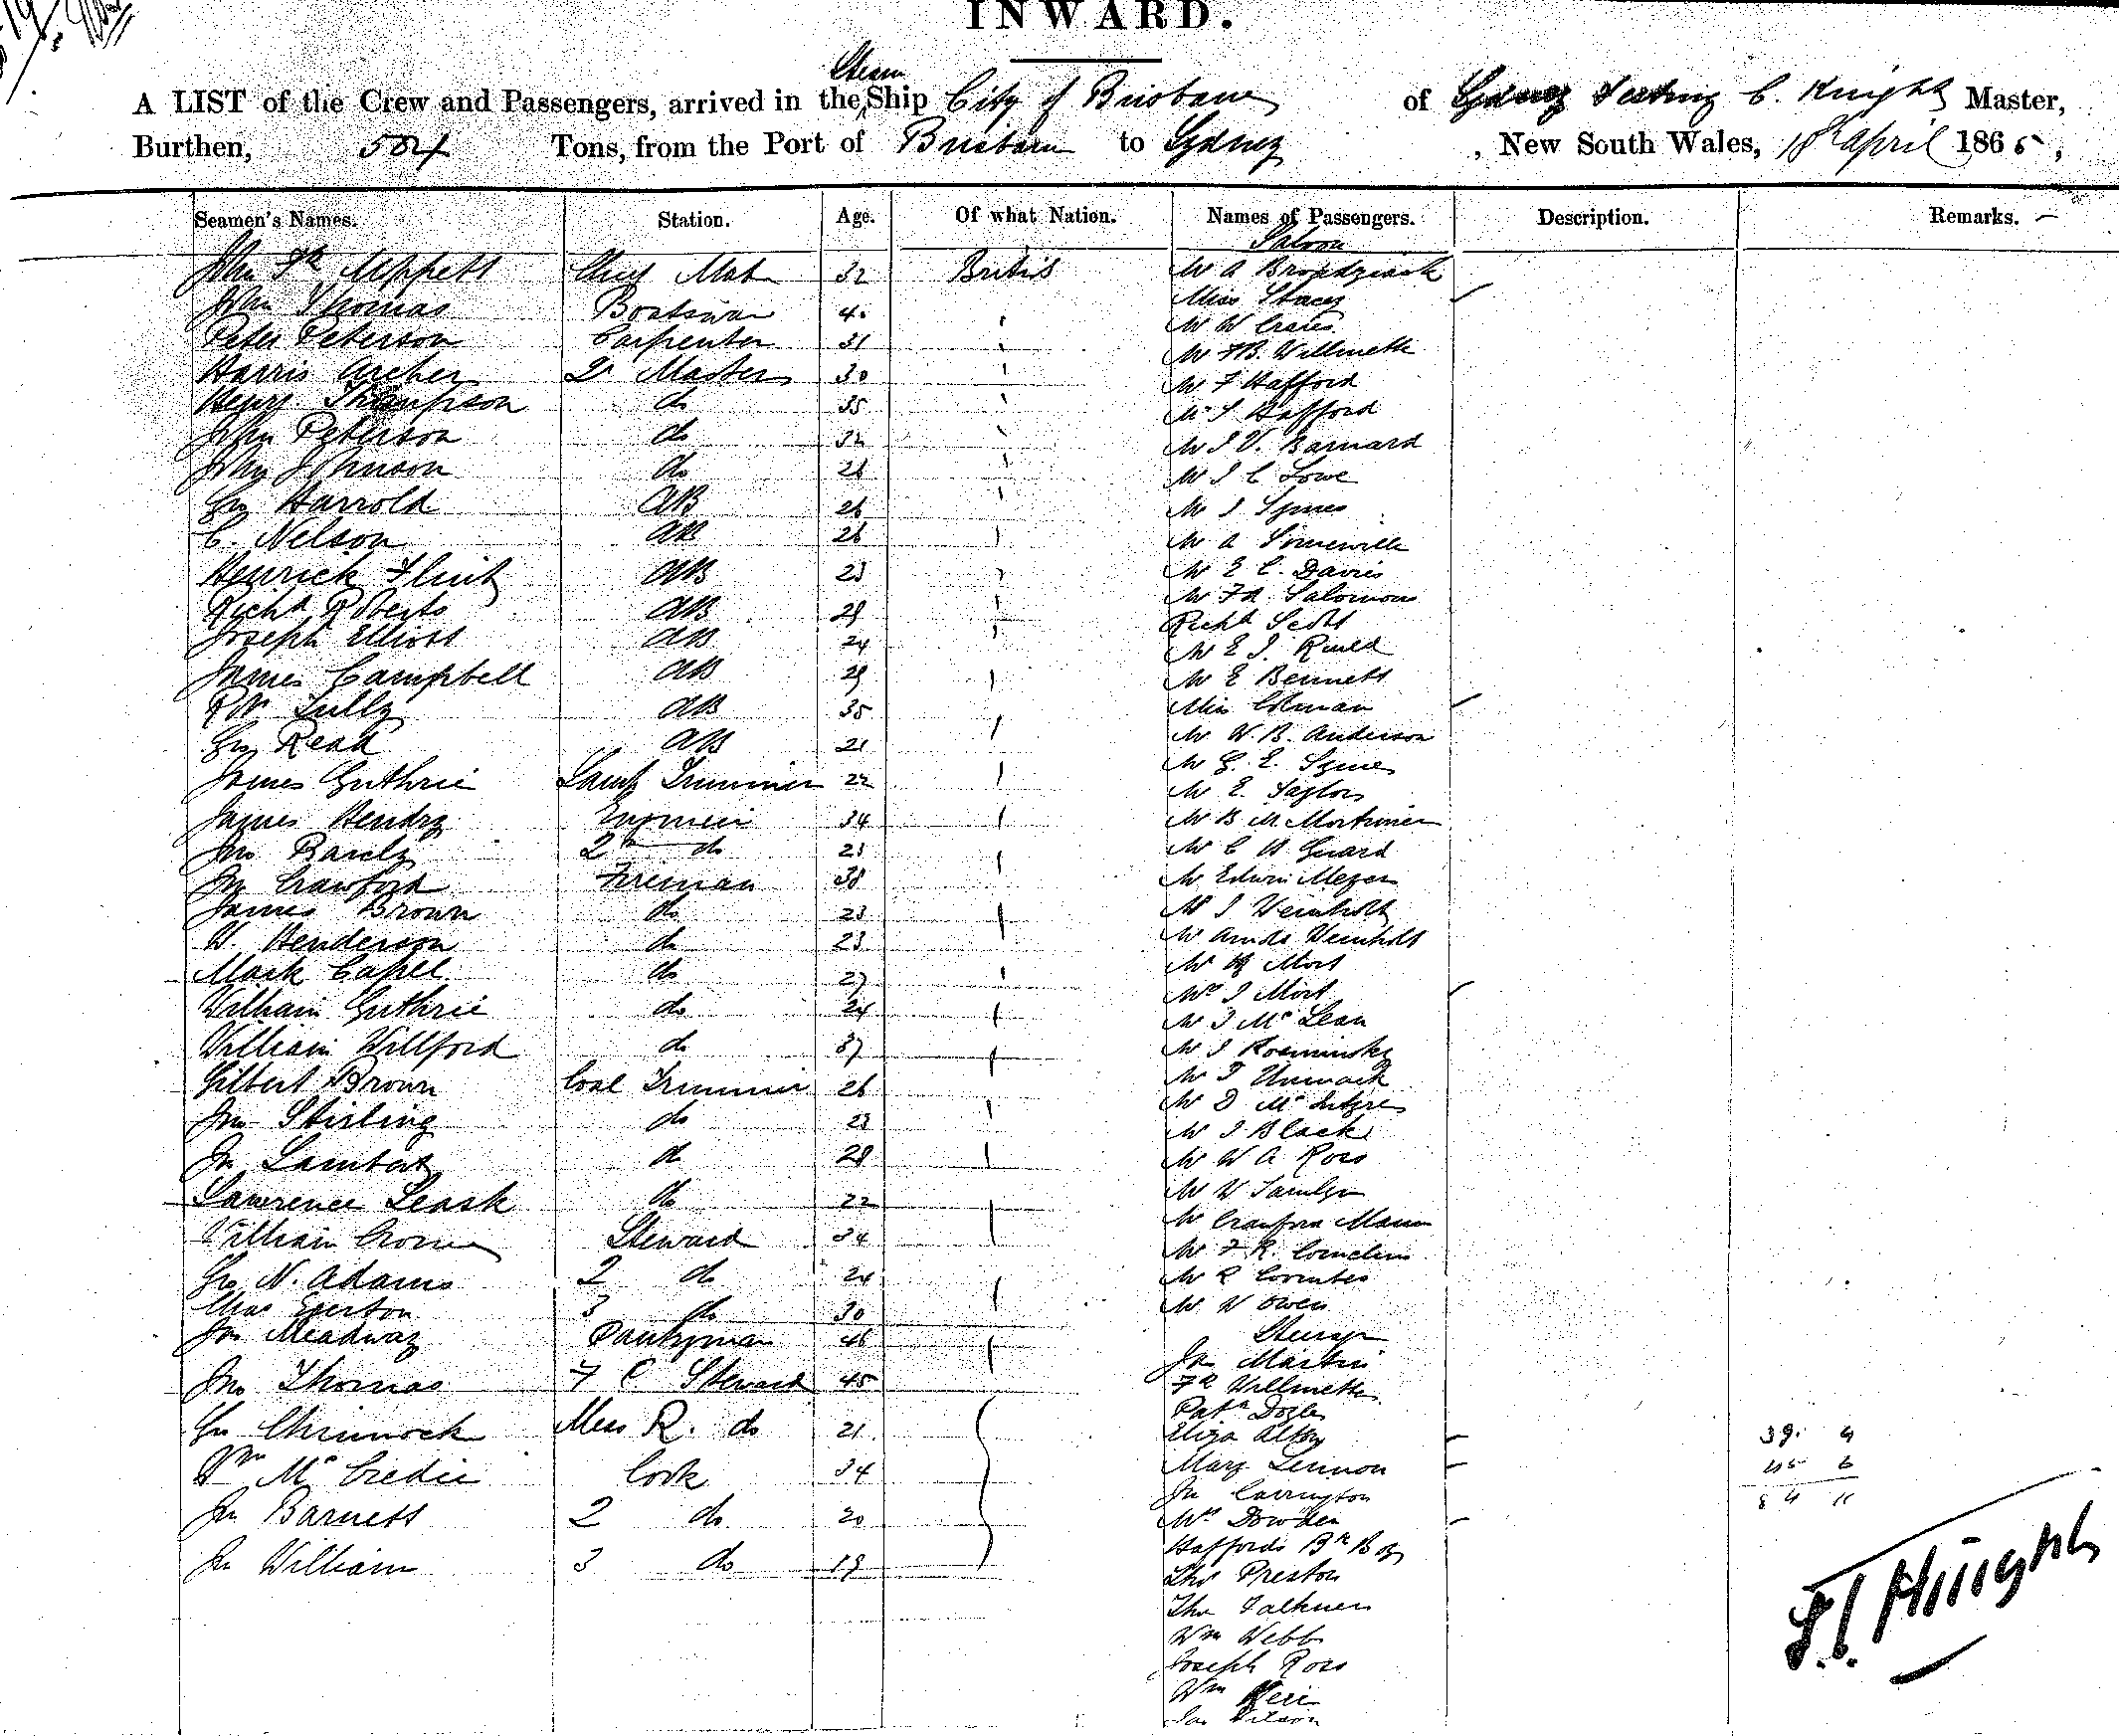 INWARD.
A LIST of the Crew and Passengers, arrived in the Steam Ship City of Brisbane of Knight Master,
Burthen, 504 Tons, from the Port of Brisbane to Sydney, New South Wales, 18th April 1865,
Seamen's Names. Station. Age. Of what Nation. Names of Passengers. Description. Remarks.
Saloon
John Fk Uppett Chief Mate 32 British Mr A Brodziack
John Thomas Boatswain 40 Miss Stacey
Peter Peterson Carpenter 31 Mr W
Harris Archer 2r Master 30 Mr F B. Willmett
Henry Thompson do 35 Mr F Hafford
John Peterson do 32 Mr S Hafford
John Johnson do 26 Mr J V. Barnard
Geo Harrold AB 26 Mr J C Lowe
C. Nelson AB 26 Mr J Symes
Henrick Flint AB 23 Mr A Somerville
Richd Roberts AB 29 Mr E C. Davies
Joseph Elliott AB 24 Mr Salomons
James Campbell AB 29 Richd Scott
R W Tully AB 35 Mr E J.
Geo Read AB 21 Mr E Bennett
James Guthrie Lamp Trimmer 22 Miss Colman
James Hendry Engineer 34 Mr W. B. Anderson
Jno 2nd do 21 Mr G. E. Symes
Jno Crawford Fireman 38 Mr E. Taylor
James Brown do 23 Mr B M Mortimer
W. Henderson do 23 Mr C H Guard
Mark Capel do 27 Mr Edwin Meyer
William Guthrie do 24 Mr J Weinholt
William Willford do 37 Mr Weinholt
Gilbert Brown Coal Trimmer 26 Mr Mort
Jno Stirling do 23 Mrs J Mort
Jn Lambert do 28 Mr J McLean
Lawrence Leask do 22 Mr J Rosminsky
William Steward 34 Mr T Unmack
Geo N. Adams 2 do 24 Mr D
Chas Egerton 3 do 30 Mr J Black
Jno Meadway Pantryman 46 Mr W A Ross
Jno Thomas F C Steward 45 Mr W
Geo Chinnock Mess R. do 21 Mr Crawford Mann
Wm McCredie Cook 34 Mr F R. Cornelius
Jn Barnett 2 do 20 Mr R Coombes
Jn William 3 do 19 Mr W Owen
Steerage
Jn Martin
Fk Willmett
Patk Doyle
Eliza
Mary Lennon
Jn Carrington
Mrs Dowden
Haffords Bk Boy
Thos Preston
Thos Falkner
Wm Webb
Joseph Ross
Wm Keir
Jas Wilson
39 4
45
84 11
Knight